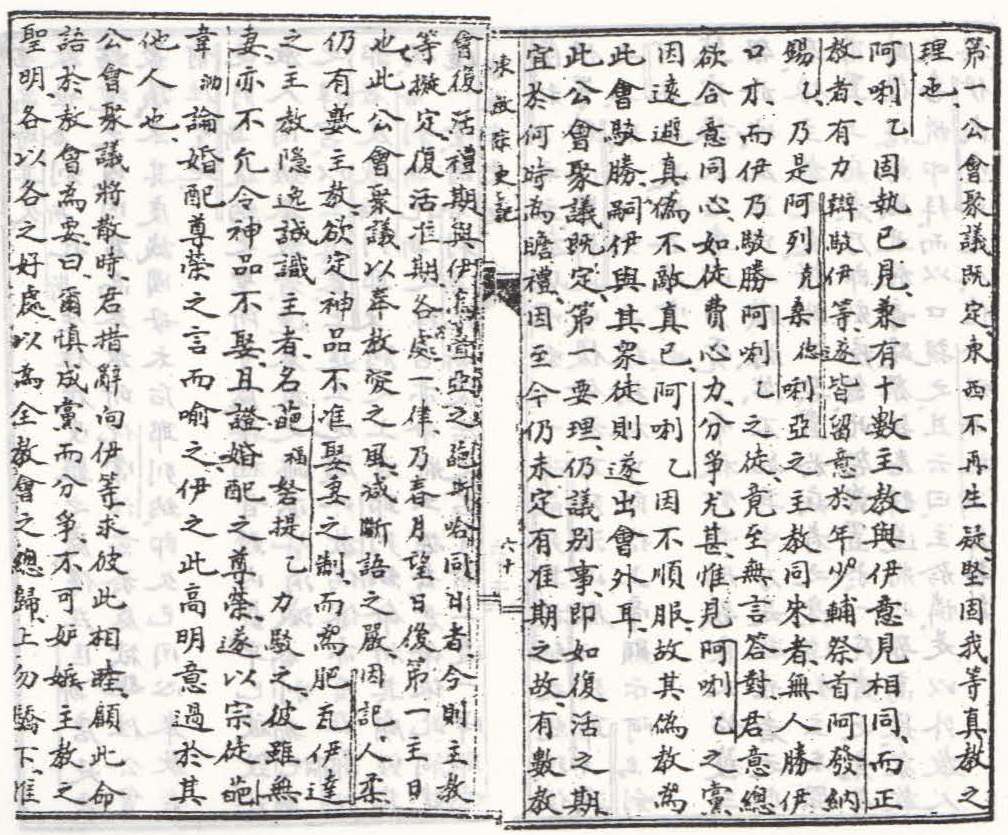 第一公會聚議既定、東西不再生疑堅固我等真教之
理也、
阿唎乙因執己見、兼有十數主教與伊意見相同、而正
教者、有力辯駁伊等、遂皆留意於年少輔祭首阿發納
錫乙、乃是阿列克桑德唎亞之主教同來者、無人勝伊
口才、而伊乃駁勝阿唎乙之徒、竟至無言答對、君意總
欲合意同心、如徒費心力、分爭尤甚、惟見阿唎乙之黨
因遠避真偽不敵真已、阿唎乙因不順服、故其偽教為
此會駁勝、嗣伊與其眾徒則遂出會外耳、
此公會聚議既定、第一要理仍議別事、即如復活之期
宜於何時為瞻禮、因至今仍未定有准期之故、有數教
東教宗史記
六十
會復活禮期與伊亞之葩斯哈同日者、今則主教
等擬定復活准期、各處一律、乃春月望日後第一主日
也、此公會聚議以舉教之風、減斷語之嚴、因記人柔
仍有數主教欲定神品不准娶妻之制、而肥瓦伊達
之主教隱逸誠識主者、名葩福努提乙、力駁之、彼雖無
妻、亦不允令神品不娶、且證婚配之尊榮、遂以宗徒葩
韋泐論婚配尊榮之言而喻之、伊之此高明意過於其
他人也、
公會聚議將散時、君措辭向伊等求彼此相睦、顧此命
語於教會為要、曰、爾慎成黨而分爭、不可妒嫉主教之
聖明、各以各之好處、以為全教會之總歸、上勿驕下、准